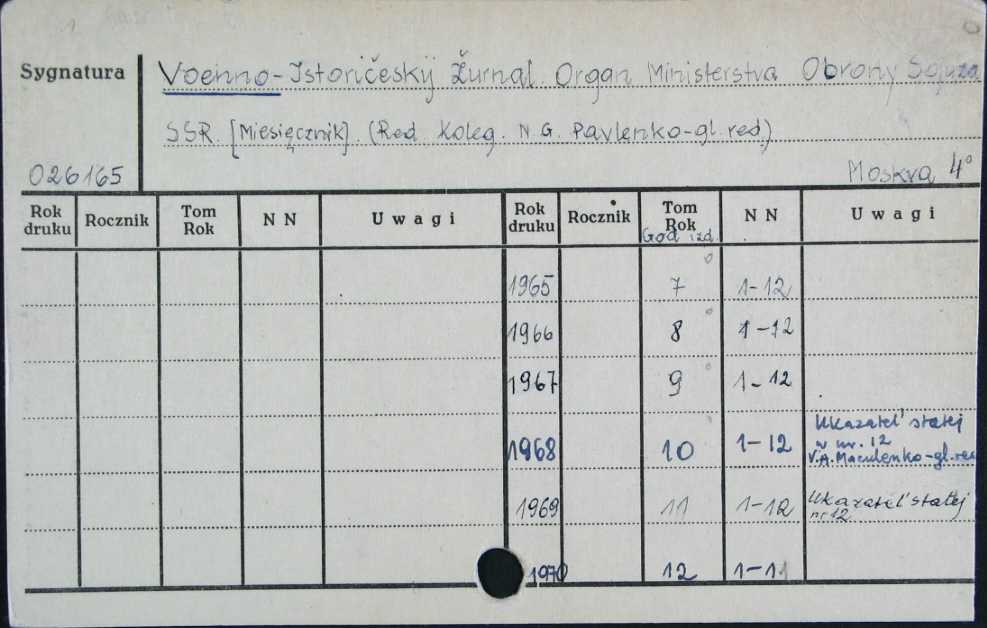 Sygnatura
Voenno-Istoričeskij Žurnal. Organ Ministerstva Obrony Sojuza
SSR. [Miesięcznik]. (Red. Koleg. N.G. Pavlenko-gl. red.)
026165
Moskva 4°
Rok druku Rocznik Tom Rok N N Uwagi Rok druku Rocznik Tom Rok N N Uwagi
God izd.
1965 7 1-12
1966 8 1-12
1967 9 1-12
1968 10 1-12 Ukazatel' statej
w nr. 12
V.A. Maculenko-gl. red
1969 11 1-12 Ukazatel' statej
nr 12
1970 12 1-11